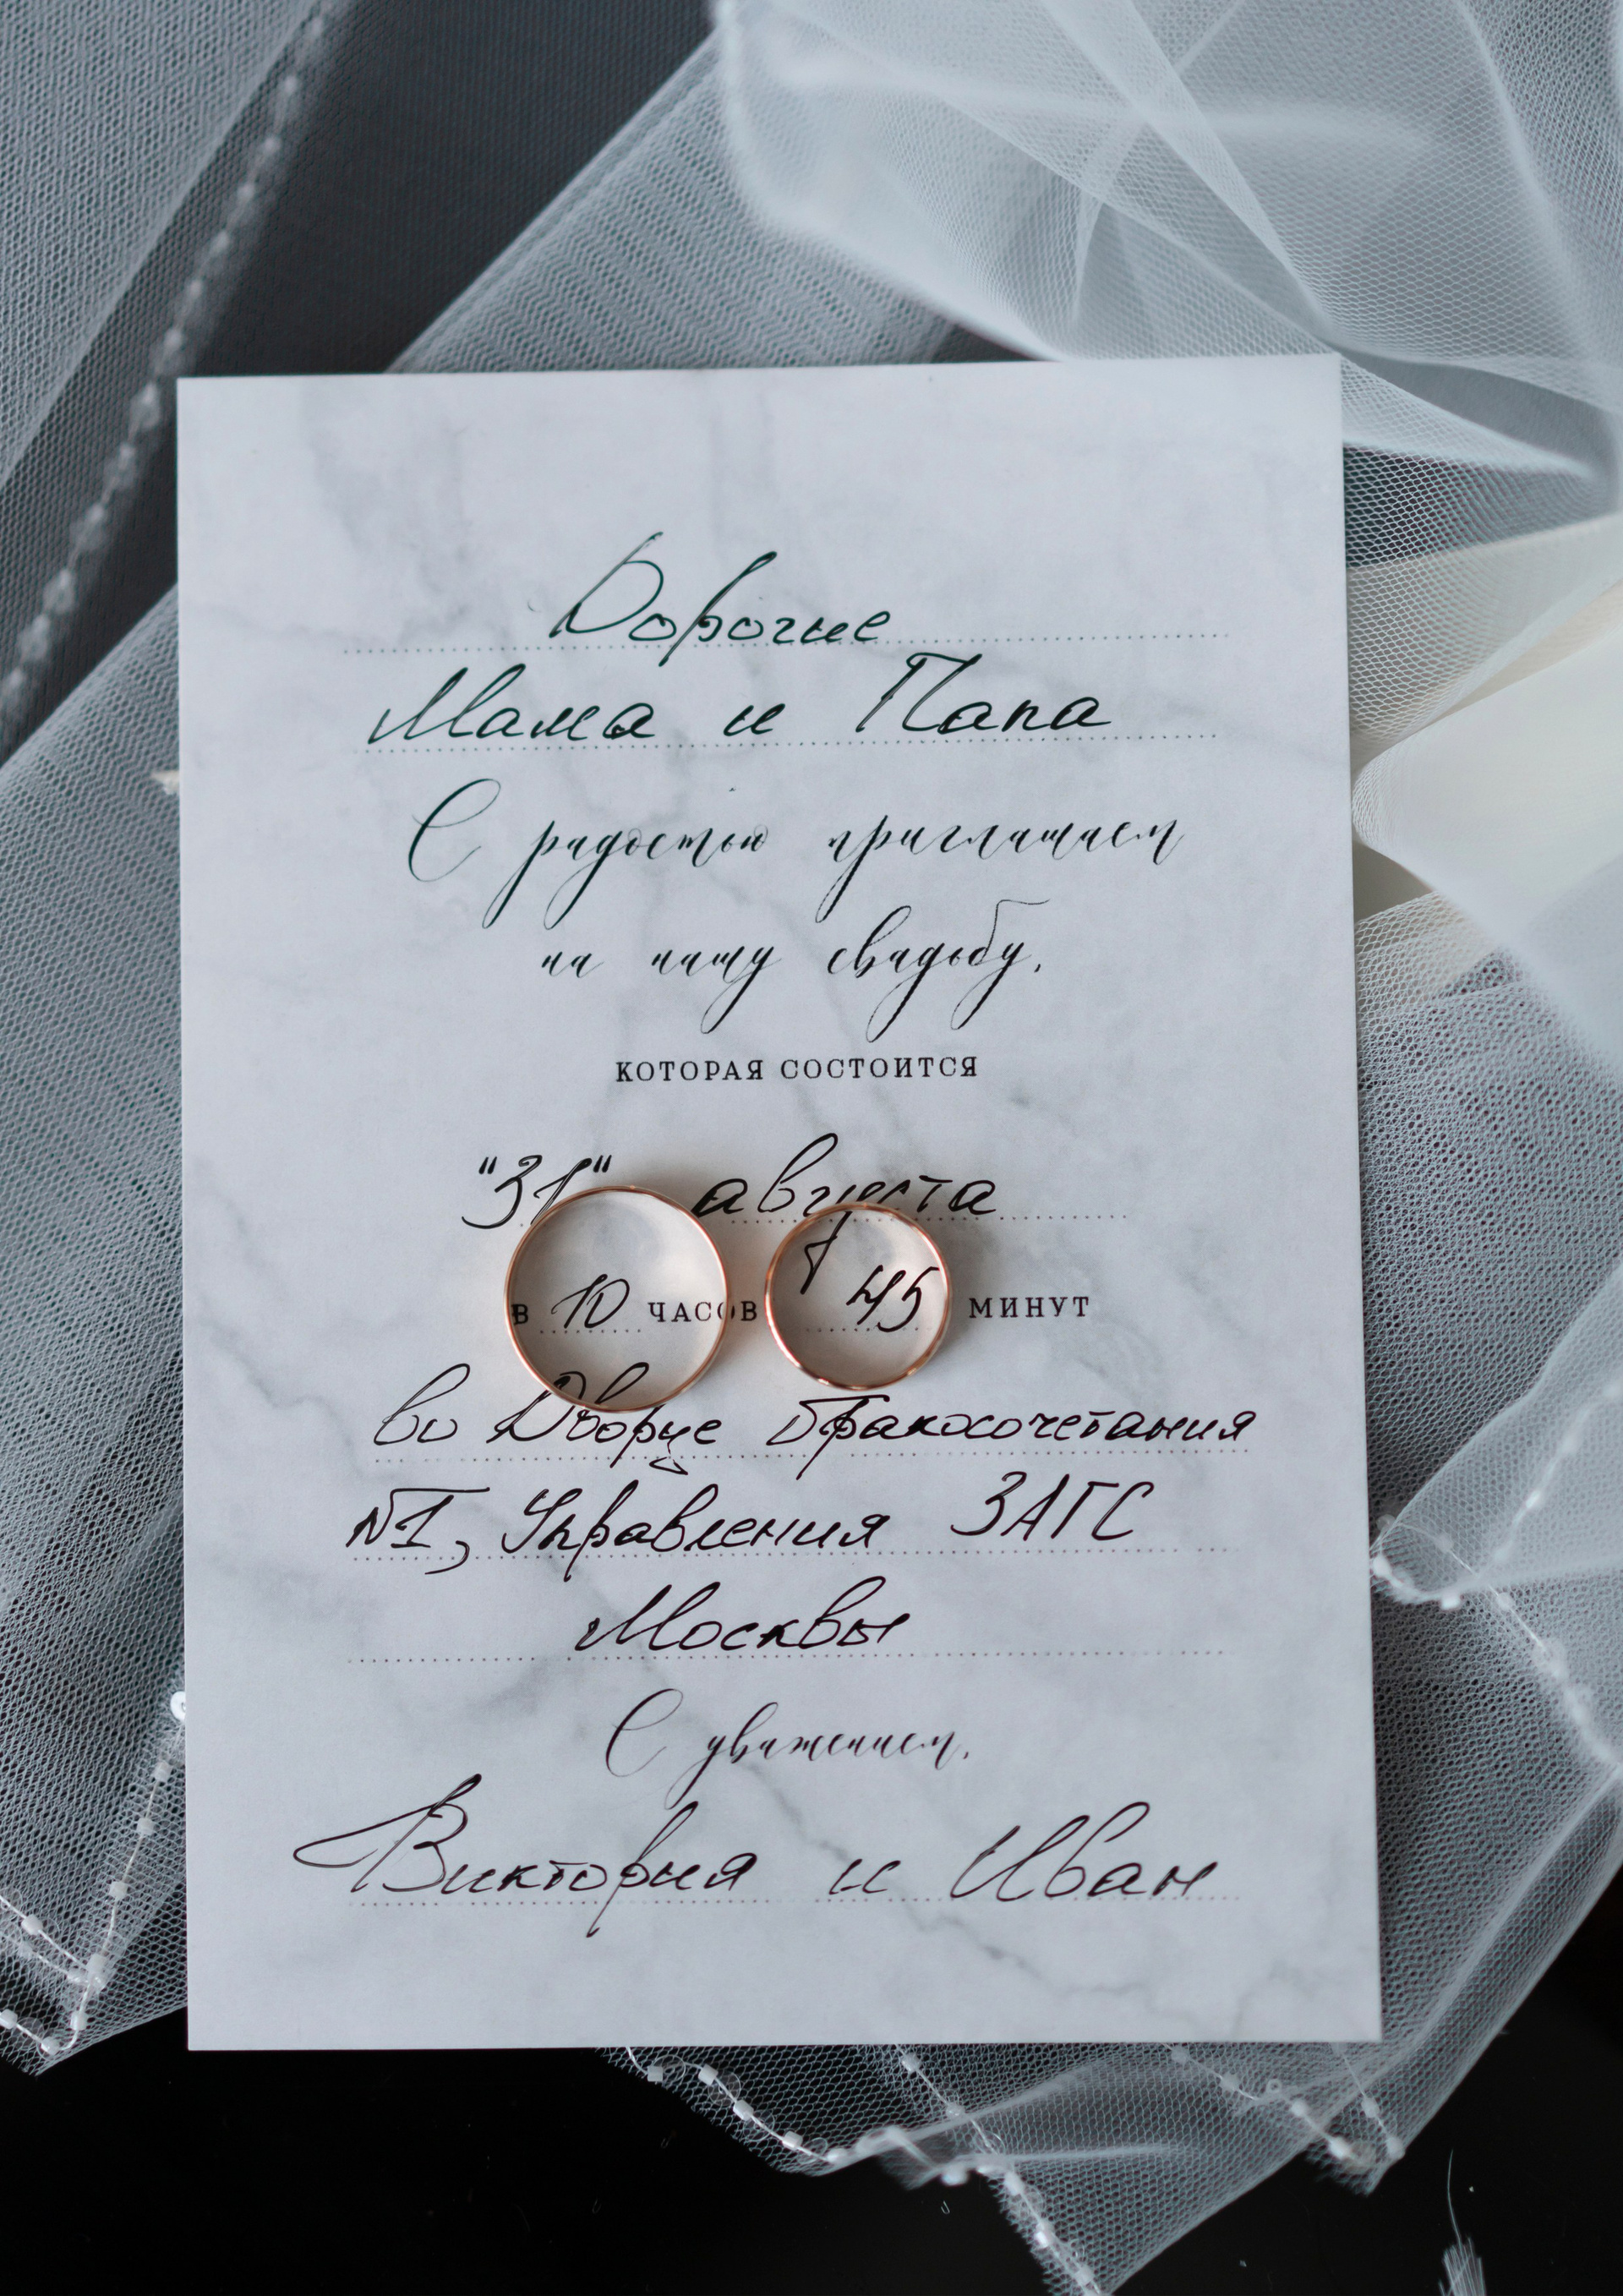 Дорогие
Мама и Папа
С радостью приглашаем
на нашу свадьбу,
КОТОРАЯ СОСТОИТСЯ
"31" августа
В 10 ЧАСОВ 45 МИНУТ
во Дворце бракосочетания
№1, Управления ЗАГС
Москвы
С уважением,
Виктория и Иван